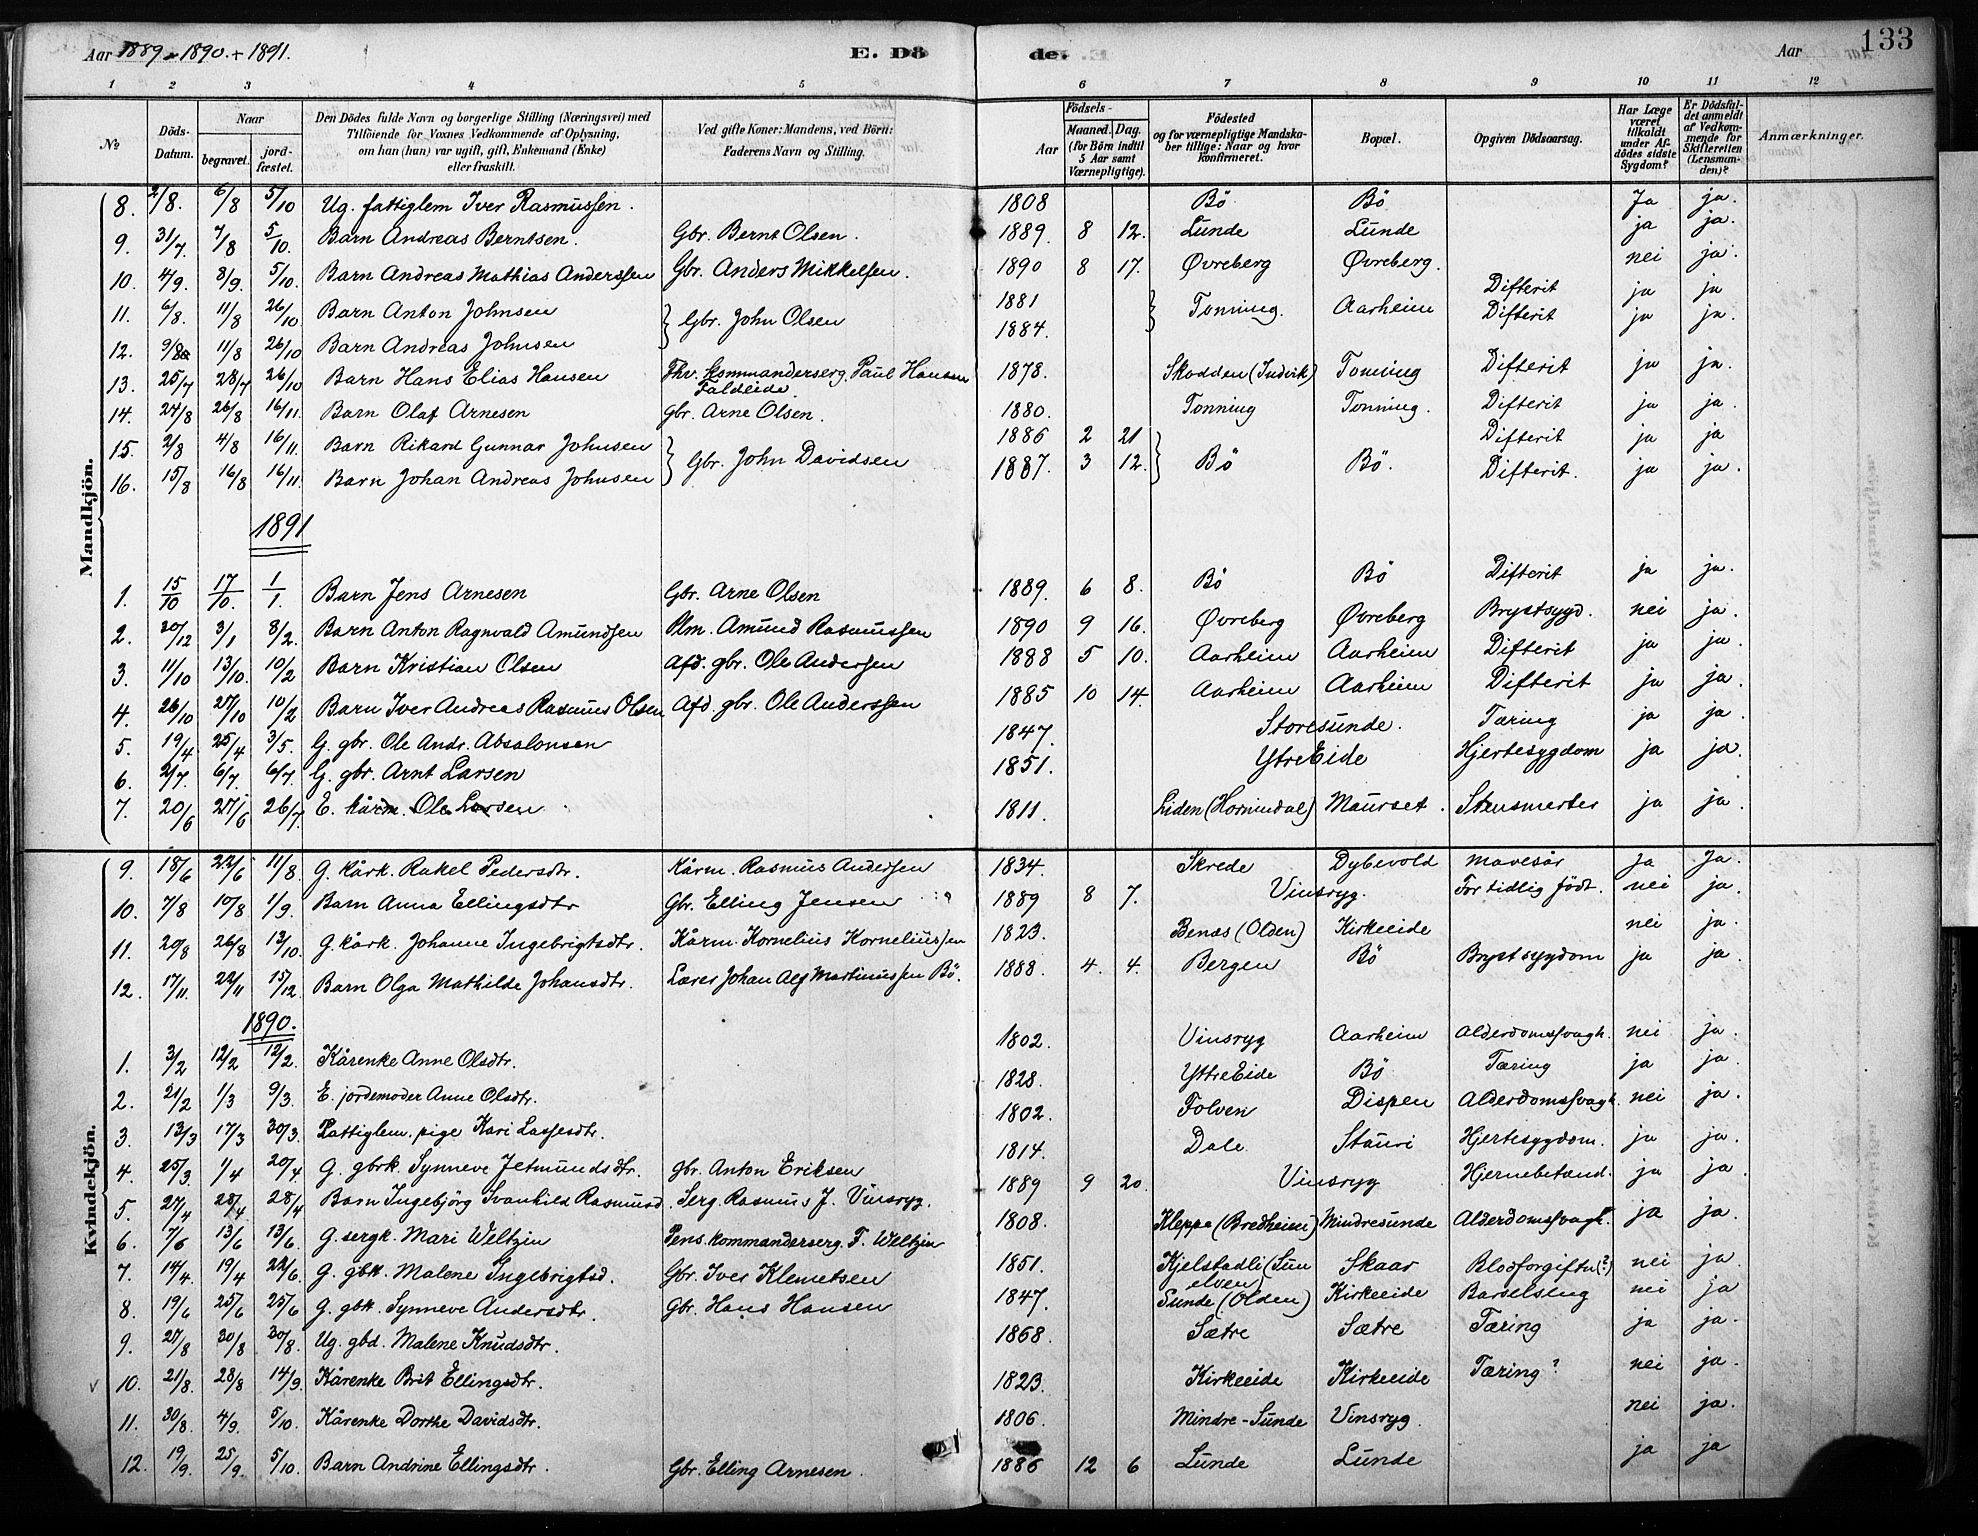 Aar 1889 - 1890. + 1891. E. Döde. Aar 133
1 2 3 4 5 6 7 8 9 10 11 12
No Döds-Datum. Naar begravet. jordfæstet. Den Dödes fulde Navn og borgerlige Stilling (Næringsvei) med Tilföiende for Voxnes Vedkommende af Oplysning, om han (hun) var ugift, gift, Enkemand (Enke) eller fraskilt. Ved gifte Koner: Mandens, ved Börn: Faderens Navn og Stilling. Födsels- Aar Maaned. Dag. (for Börn indtil 5 Aar samt Værnepligtige). Födested og for værnepligtige Mandskaber tillige: Naar og hvor konfirmeret. Bopæl. Opgiven Dödsaarsag. Har Læge været tilkaldt under Afdödes sidste Sygdom? Er Dödsfaldet anmeldt af Vedkommende for Skifteretten (Lensmanden)? Anmærkninger.
Mandkjön.
8. 2/8. 6/8 5/10 Ug. fattiglem Iver Rasmussen. 1808 Bö Bö Ja ja.
9. 31/7 7/8 5/10. Barn Andreas Berntsen. Gbr. Bernt Olsen. 1889. 8 12. Lunde Lunde ja ja.
10. 4/9. 8/9. 5/10. Barn Andreas Mathias Anderssen Gbr. Anders Mikkelsen. 1890 8 17. Øvreberg Øvreberg. nei ja.
11. 6/8. 11/8 26/10 Barn Anton Johnsen } Gbr. John Olsen 1881 } Tonning. Aarheim Difterit ja ja
12. 9/8 11/8 26/10 Barn Andreas Johnsen 1884. Difterit ja ja.
13. 25/7 28/7 26/10 Barn Hans Elias Hansen Fhv. Kommanderserg. Paul Hansen Faldeide. 1878. Skodden (Indvik) Tonning Difterit ja ja.
14. 24/8 26/8 16/11. Barn Olaf Arnesen gbr. Arne Olsen. 1880. Tonning Tonning. Difterit ja ja.
15. 2/8 4/8 16/11. Barn Rikard Gunnar Johnsen } Gbr. John Davidsen 1886 2 21 } Bö Bö. Difterit ja ja
16. 15/8 16/8 16/11. Barn Johan Andreas Johnsen 1887. 3 12. Difterit. ja ja.
1891
1. 15/10 17/10. 1/1. Barn Jens Arnesen Gbr. Arne Olsen 1889. 6 8. Bö Bö Difterit ja ja.
2. 30/12 3/1 8/2. Barn Anton Ragnvald Amundsen Plm. Amund Rasmussen 1890 9 16. Øvreberg Øvreberg Brystsygd. nei ja.
3. 11/10 13/10. 10/2 Barn Kristian Olsen Afd. gbr. Ole Andersen 1888 5 10. Aarheim Aarheim Difterit ja ja.
4. 26/10 27/10 10/2 Barn Iver Andreas Rasmus Olsen Afd. gbr. Ole Anderssen 1885 10 14. Aarheim Aarheim Difterit ja ja.
5. 19/4 25/4 3/5. G. gbr. Ole Andr. Absalonsen 1847. Storesunde. Tæring ja ja.
6. 2/7. 6/7. 6/7. G. gbr. Arnt Larsen 1851. Ytre Eide Hjertesygdom ja ja.
7. 20/6 27/6 26/7. E. kårm. Ole Larsen 1811. Liden (Hornindal) Maurset. Stensmerter ja ja.
Kvindekjön.
9. 18/6 22/6 11/8. G. kårk. Rakel Pedersdtr. Kårm. Rasmus Andersen 1834. Skrede Dybevold Mavesår ja Ja.
10. 7/8 10/8 1/9. Barn Anna Ellingsdtr Gbr. Elling Jensen 1889 8 7. Vinsryg. For tidlig födt. nei ja.
11. 20/8 26/8 13/10. G. kårk. Johanne Ingebrigtsdtr. Kårm. Kornelius Korneliussen 1823. Benæs (Olden) Kirkeeide nei ja.
12. 17/11. 22/11 15/12 Barn Olga Mathilde Johansdtr. Lærer Johan Alf Martinussen Bö. 1888. 4. 4. Bergen Bö Brystsygdom ja ja.
1890.
1. 3/2 12/2 12/2. Kårenke Anne Olsdtr. 1802. Vinsryg Aarheim Alderdomssvagh. nei ja.
2. 21/2 1/3 9/3. E. jordemoder Anne Olsdtr. 1828. Ytre Eide Bö Tæring ja ja.
3. 13/3 17/3 30/3. Fattiglem. pige Kari Lassesdtr. 1802. Folven Dispen Alderdomssvagh. nei ja.
4. 25/3. 1/4 20/4 G. gbrk. Synneve Jetmundsdtr. gbr. Anton Eriksen 1814. Dale Stauri Hjertesygdom. ja ja.
5. 27/4 28/4 28/4 Barn Ingebjörg Svanhild Rasmusd. Serg. Rasmus J. Vinsryg. 1889 9 20. Vinsryg Hjernebetænd. ja ja.
6. 7/6 13/6 13/6. G. sergk. Mari Weltzin Pens. kommanderserg. F. Weltzin 1808. Kleppe (Bredheim) Mindresunde Alderdomssvagh. ja ja.
7. 14/4. 19/4 22/6. G. gbk. Malene Ingebrigtsd. Gbr. Iver Klemetsen 1851. Kjelstadli (Sunelven) Skaar Blodforgiftn (?) nei ja.
8. 19/6 25/6 25/6 G. gbk. Synneve Andersdtr. Gbr. Hans Hansen 1847. Sunde (Olden) Kirkeeide Barselseng nei ja
9. 27/8 30/8 30/8. Ug. gbd. Malene Knudsdtr. 1868. Sætre Sætre Tæring ja ja.
10. 21/8. 28/8 14/9 Kårenke Brit Ellingsdtr. 1823. Kirkeeide Kirkeeide Tæring? nei ja.
11. 30/8. 4/9. 5/10. Kårenke Dorthe Davidsdtr. 1806. Mindre-Sunde Vinsryg. nei ja.
12. 19/9. 25/9. 5/10. Barn Andrine Ellingsdtr. Gbr. Elling Arnesen. 1886 12 6 Lunde Lunde ja ja